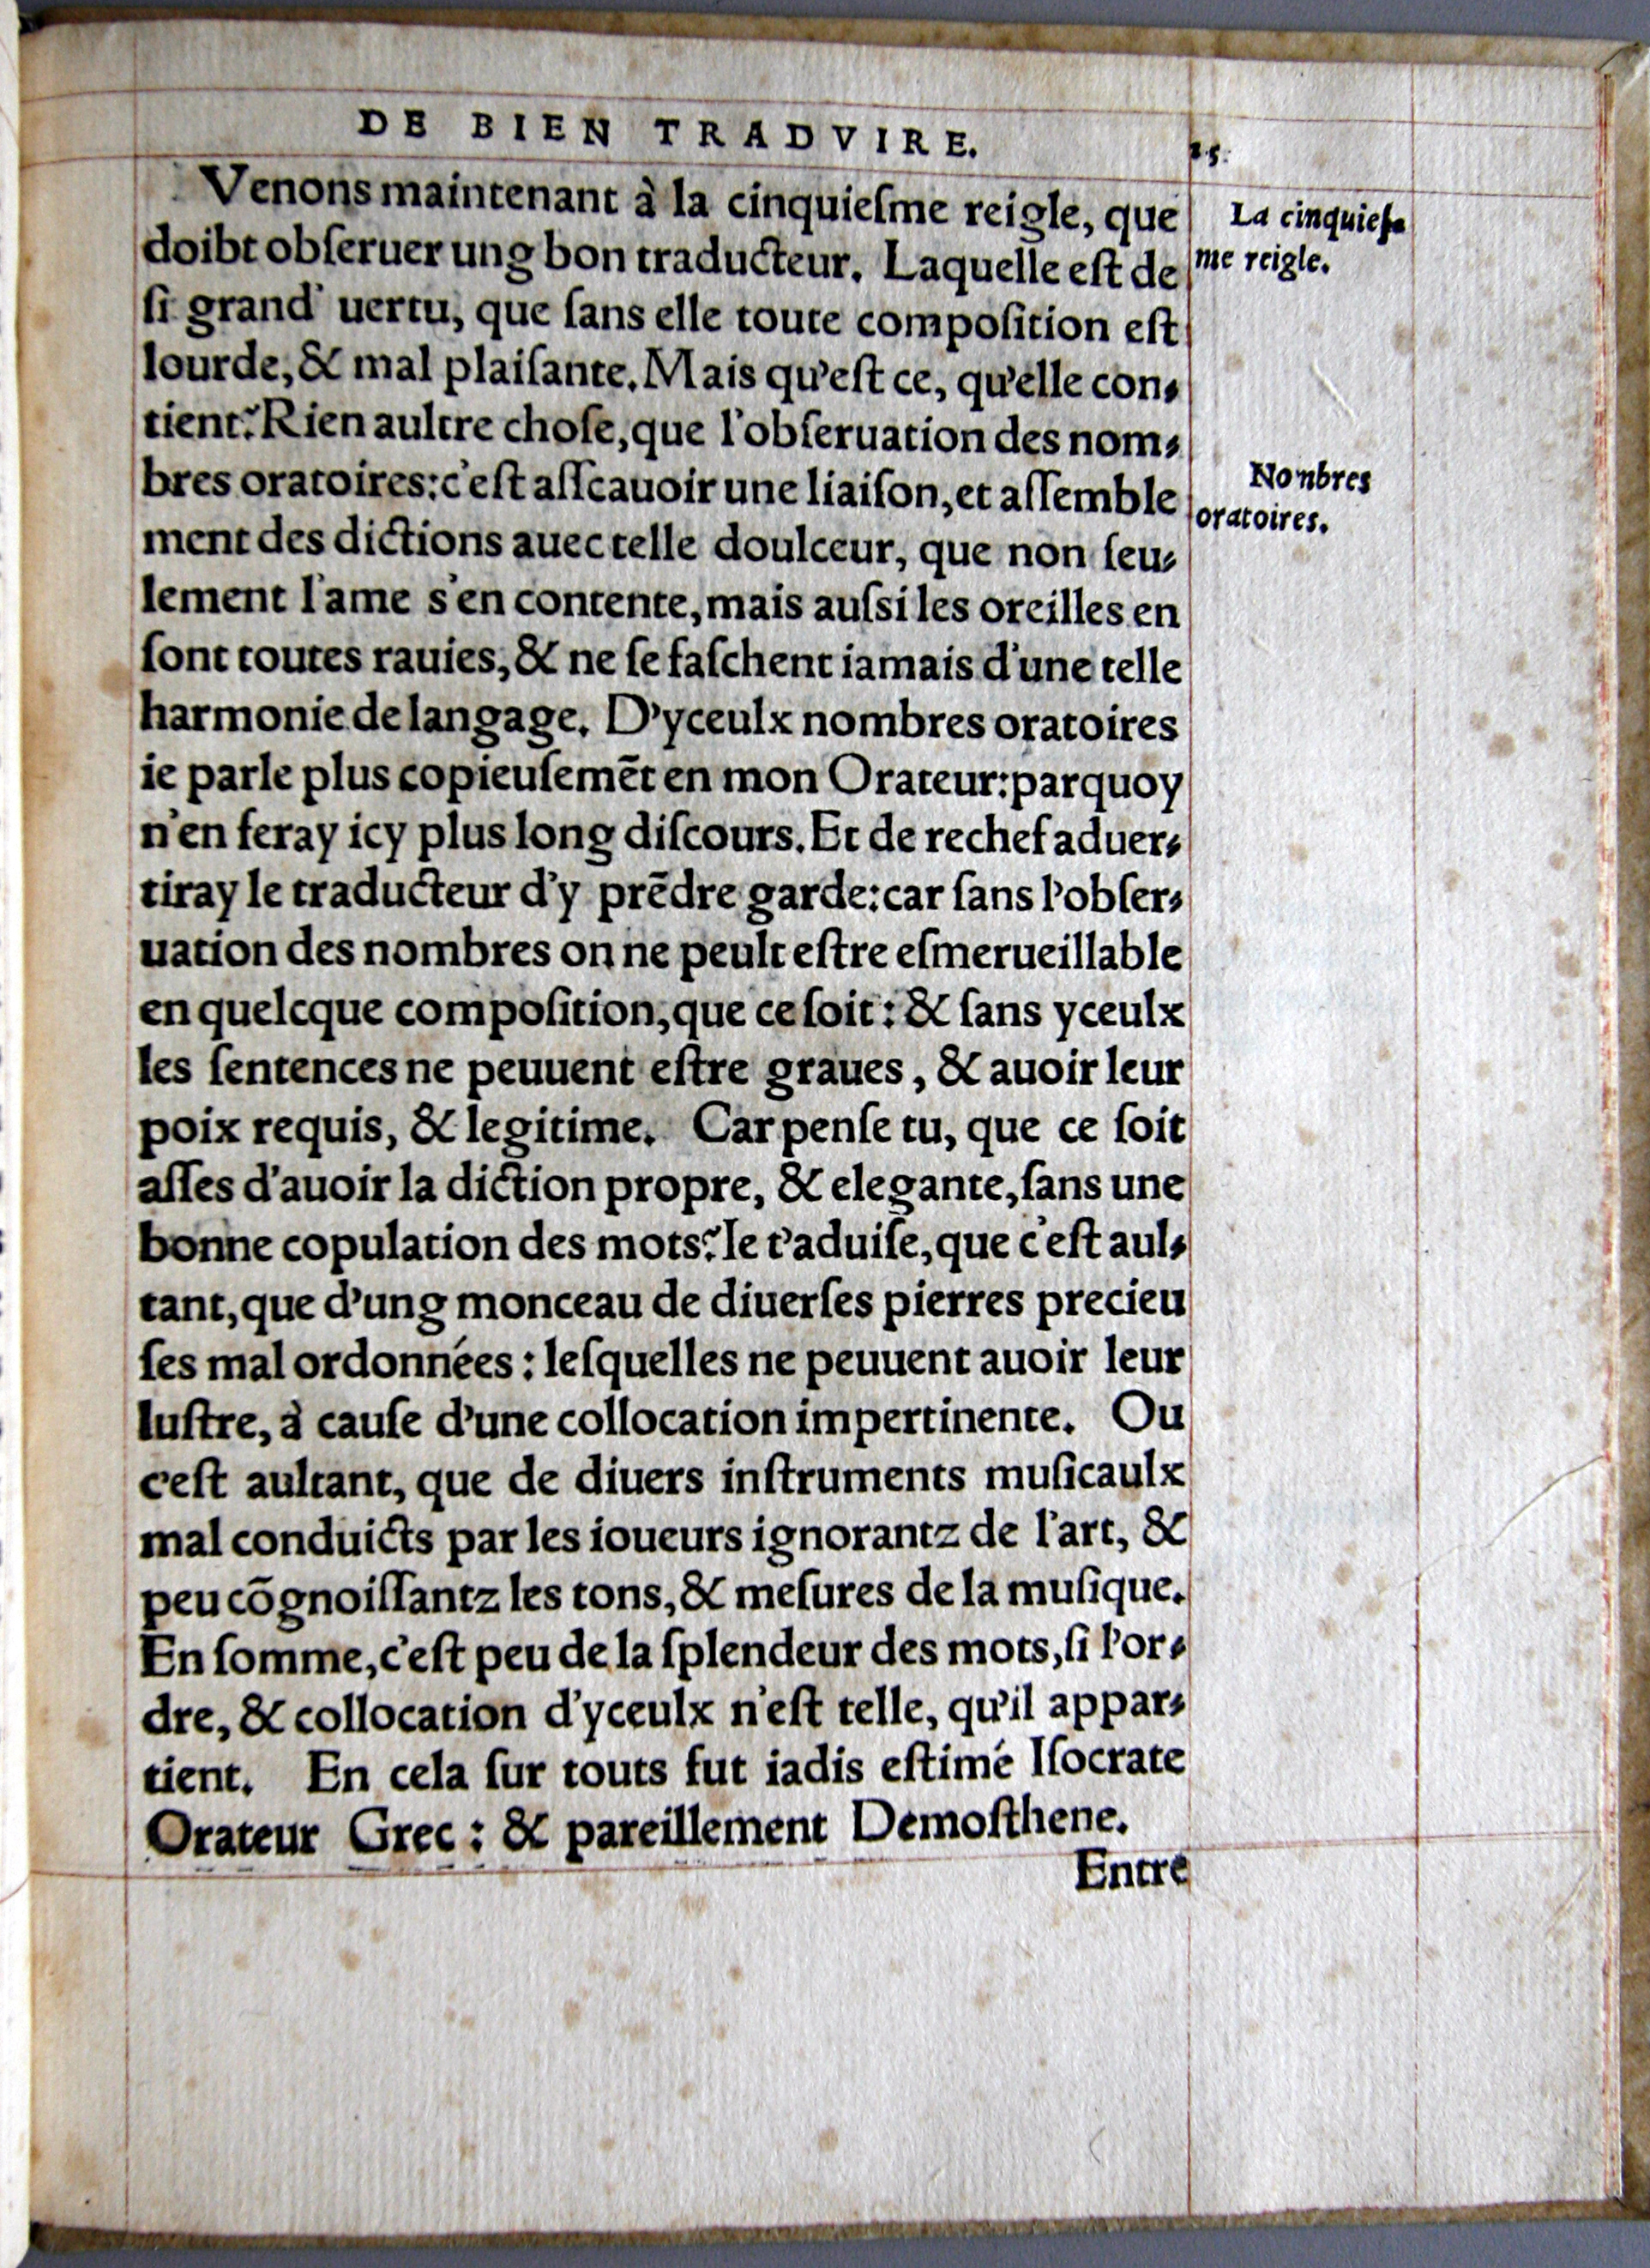 DE BIEN TRADVIRE. 15
Venons maintenant à la cinquieſme reigle, que
doibt obſeruer ung bon traducteur. Laquelle eſt de
ſi grand' uertu, que ſans elle toute compoſition eſt
lourde, & mal plaiſante. Mais qu'eſt ce, qu'elle con-
tient? Rien aultre choſe, que l'obſeruation des nom-
bres oratoires: c'eſt aſſcauoir une liaiſon, et aſſemble
ment des dictions auec telle doulceur, que non ſeu-
lement l'ame s'en contente, mais auſsi les oreilles en
ſont toutes rauies, & ne ſe faſchent iamais d'une telle
harmonie de langage. D'yceulx nombres oratoires
ie parle plus copieuſemẽt en mon Orateur: parquoy
n'en feray icy plus long diſcours. Et de rechef aduer-
tiray le traducteur d'y prẽdre garde: car ſans l'obſer-
uation des nombres on ne peult eſtre eſmerueillable
en quelcque compoſition, que ce ſoit: & ſans yceulx
les ſentences ne peuuent eſtre graues, & auoir leur
poix requis, & legitime. Car penſe tu, que ce ſoit
aſſes d'auoir la diction propre, & elegante, ſans une
bonne copulation des mots? Ie t'aduiſe, que c'eſt aul-
tant, que d'ung monceau de diuerſes pierres precieu
ſes mal ordonnées: leſquelles ne peuuent auoir leur
luſtre, à cauſe d'une collocation impertinente. Ou
c'eſt aultant, que de diuers inſtruments muſicaulx
mal conduicts par les ioueurs ignorantz de l'art, &
peu cõgnoiſſantz les tons, & meſures de la muſique.
En ſomme, c'eſt peu de la ſplendeur des mots, ſi l'or-
dre, & collocation d'yceulx n'eſt telle, qu'il appar-
tient. En cela ſur touts fut iadis eſtimé Iſocrate
Orateur Grec: & pareillement Demoſthene.
Entre
La cinquieſ-
me reigle.
Nombres
oratoires.